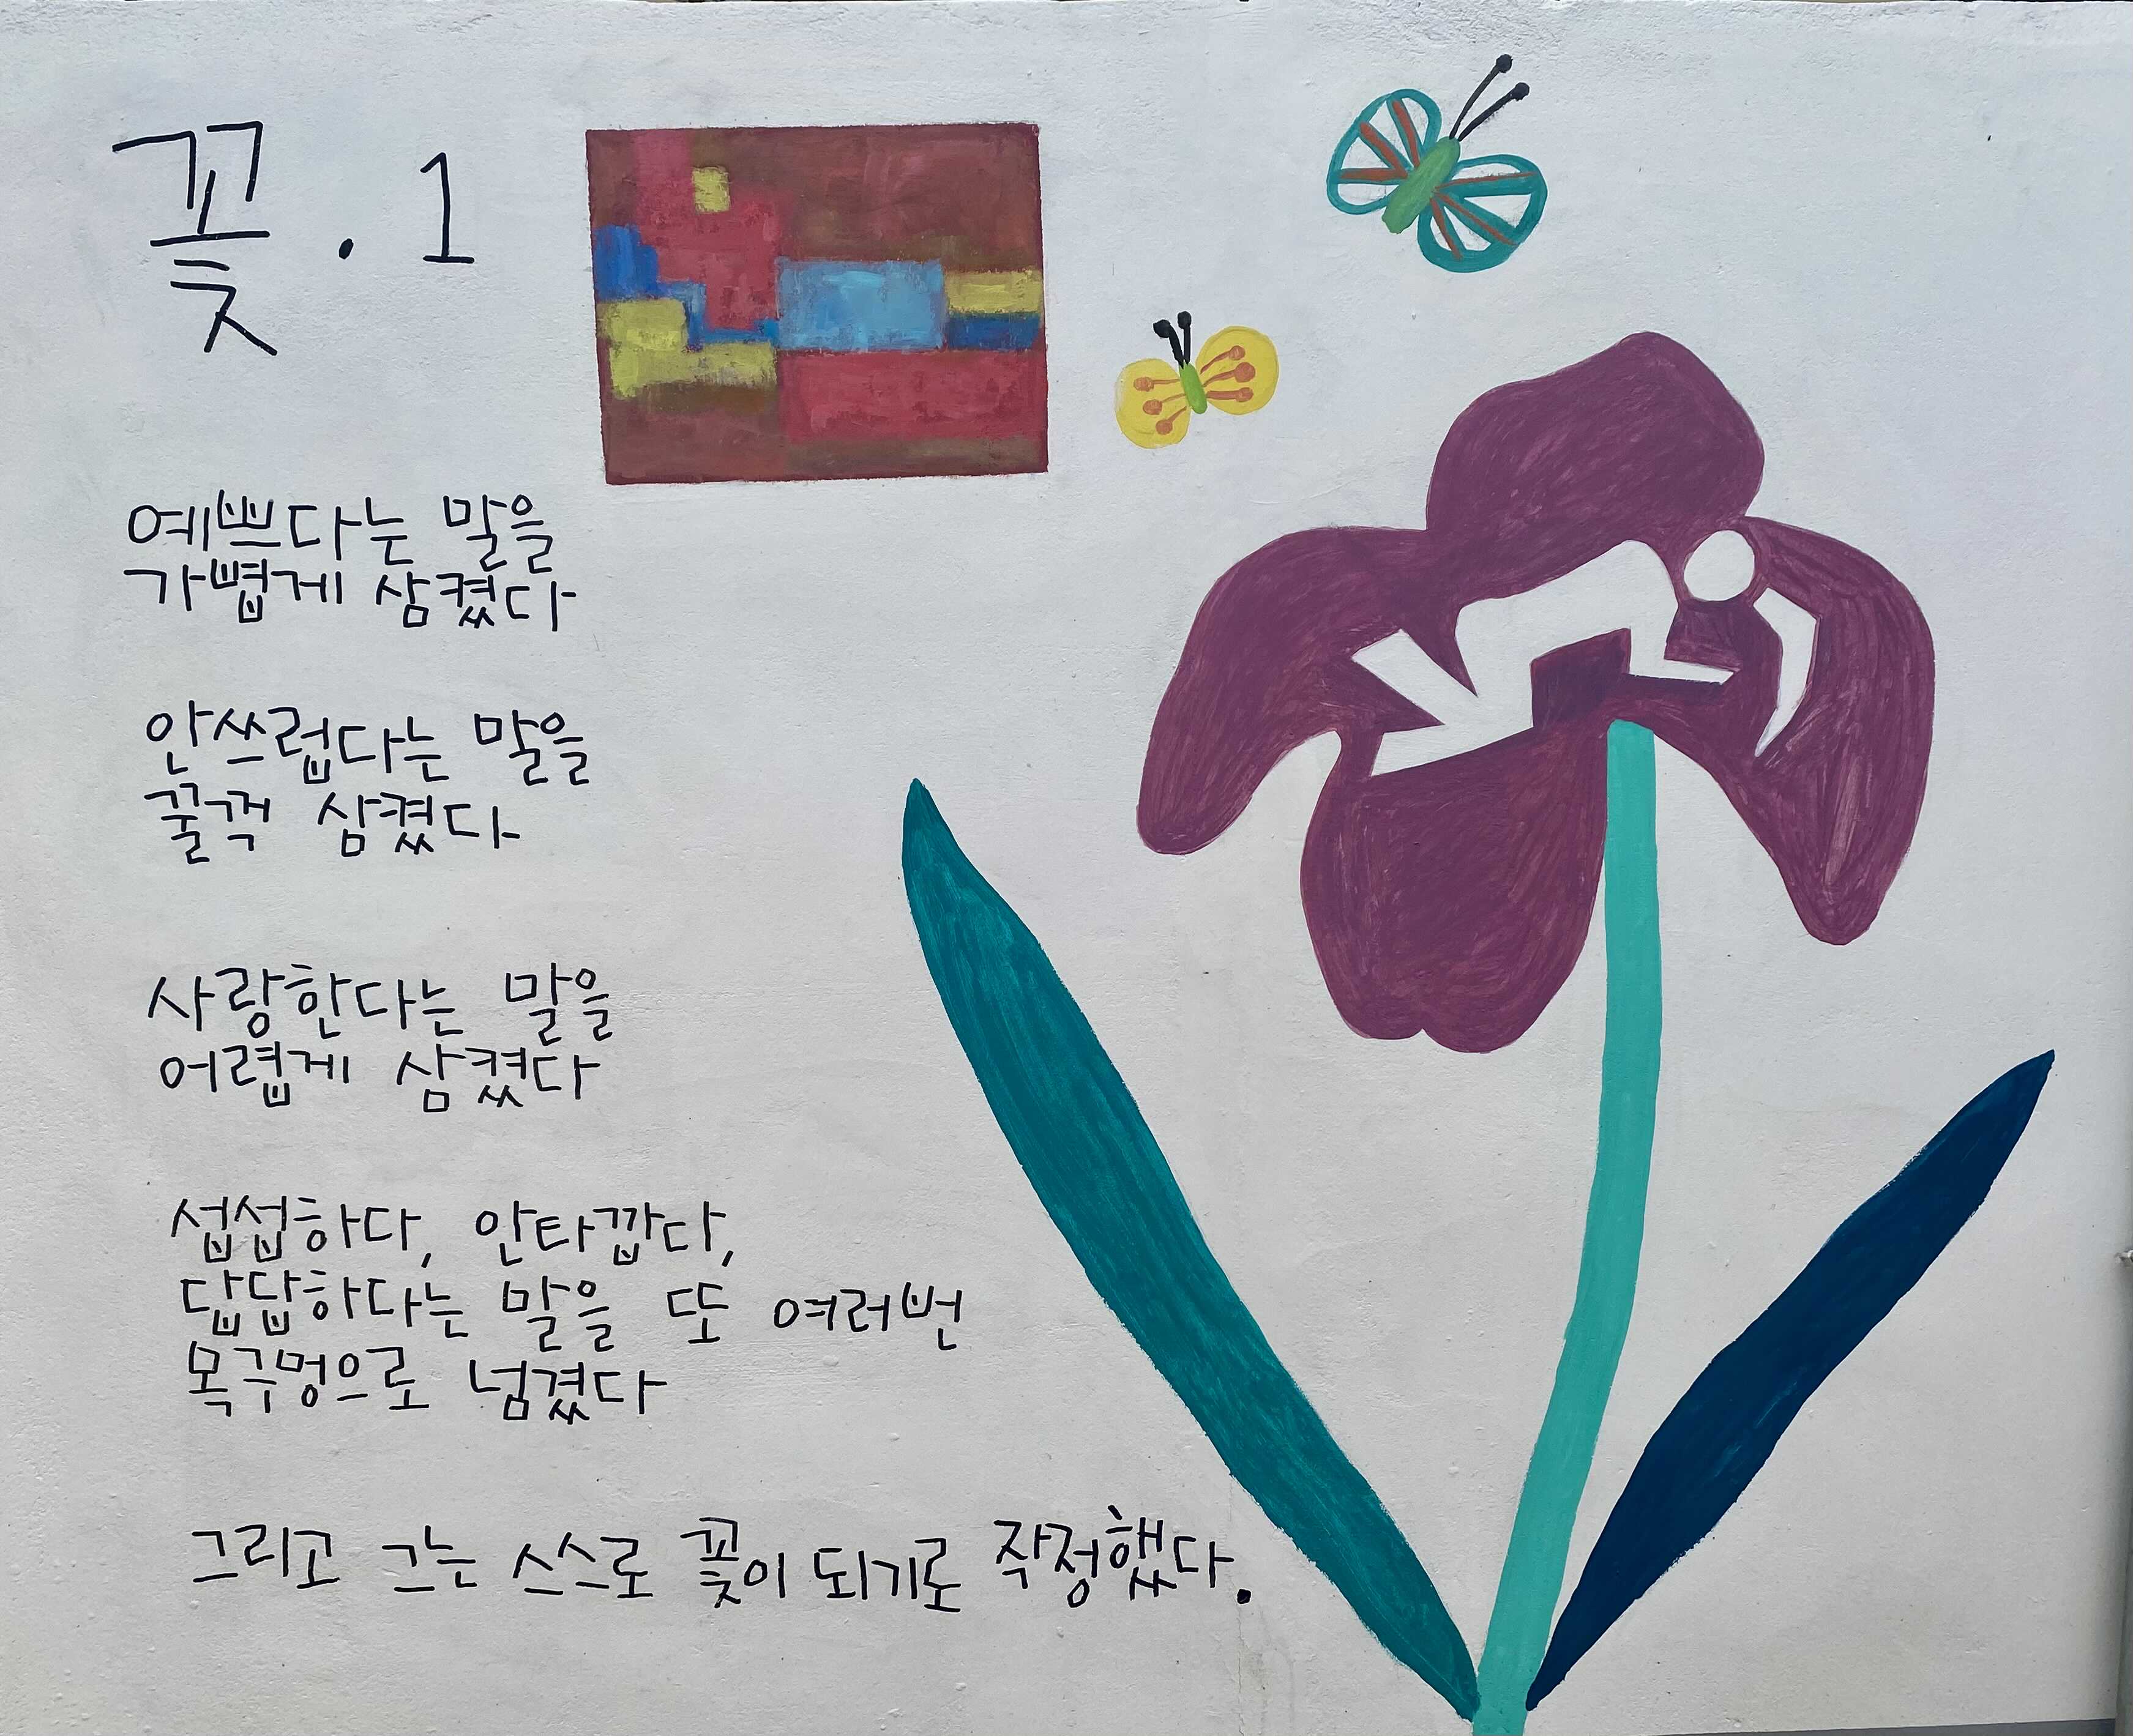 꽃.1
예쁘다는 말을
가볍게 삼켰다
안쓰럽다는 말을
꿀꺽 삼켰다
사랑한다는 말을
어렵게 삼켰다
섭섭하다, 안타깝다,
답답하다는 말을 또 여러번
목구멍으로 넘겼다
그리고 그는 스스로 꽃이 되기로 작정했다.